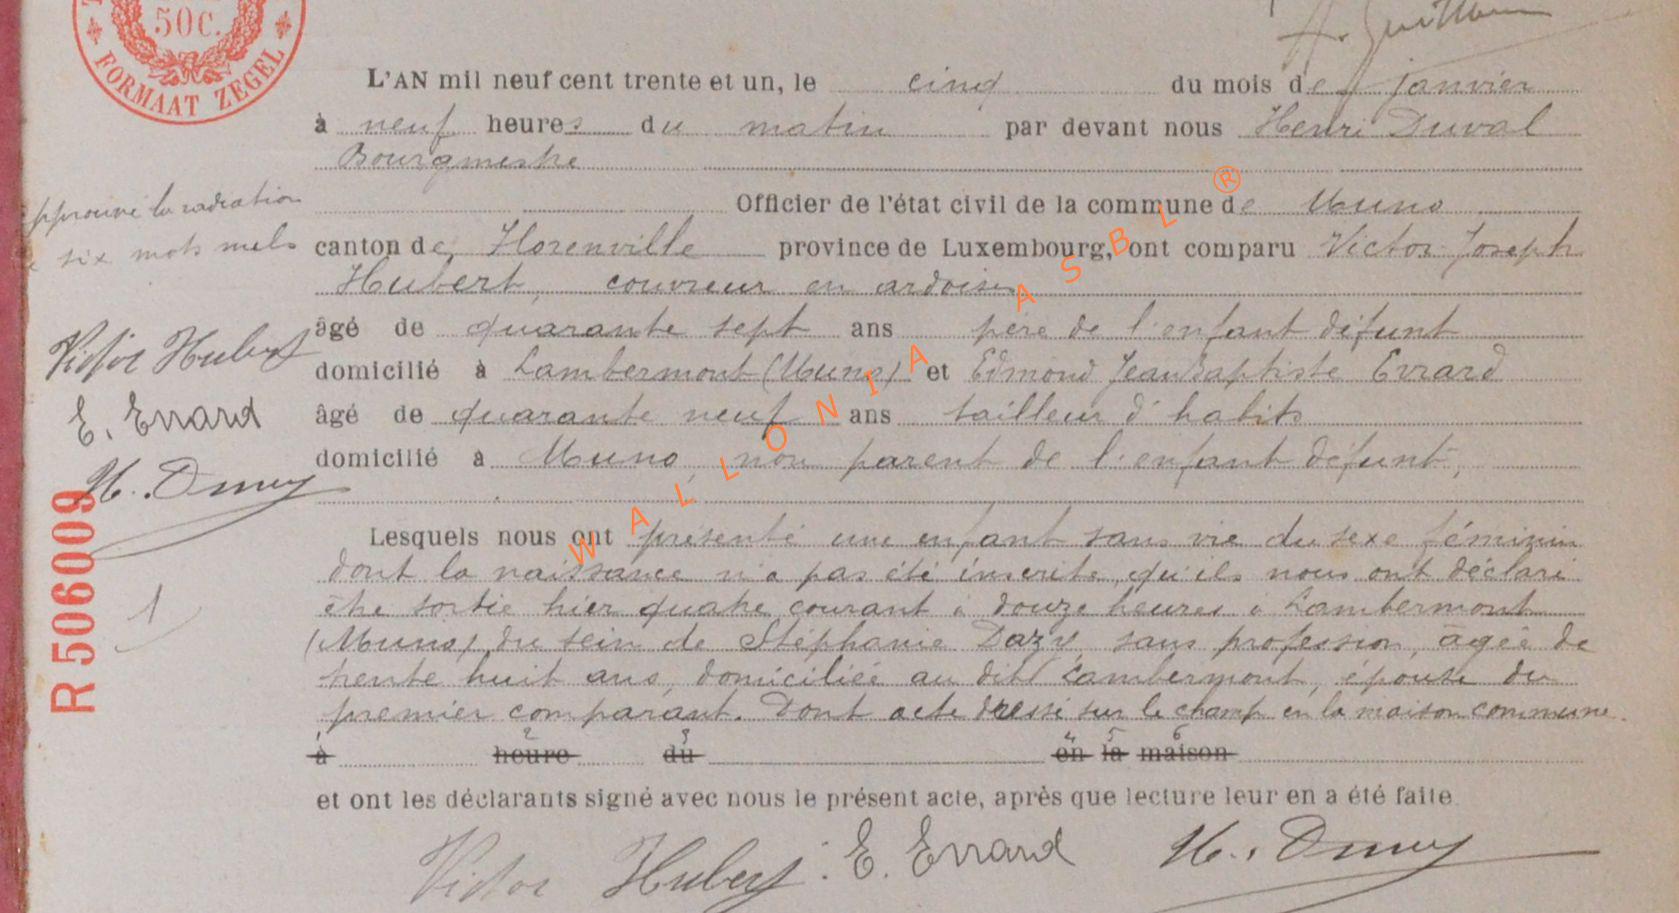 50C.
FORMAAT ZEGEL
L'AN mil neuf cent trente et un, le cinq du mois de janvier
à neuf heures du matin par devant nous Henri Duval
Bourgmestre
Officier de l'état civil de la commune de Muno
canton de Florenville province de Luxembourg, ont comparu Victor Joseph
Hubert, couvreur en ardoises
âgé de quarante sept ans père de l'enfant défunt
domicilié à Lambermont (Muno) et Edmond Jean Baptiste Evrard
âgé de quarante neuf ans tailleur d'habits
domicilié à Muno, non parent de l'enfant défunt,
Lesquels nous ont présenté une enfant sans vie du sexe féminin
dont la naissance n'a pas été inscrite, qu'ils nous ont déclaré
être sortie hier quatre courant à douze heures à Lambermont
(Muno) du sein de Stéphanie Dazy, sans profession, âgée de
trente huit ans, domiciliée au dit Lambermont, épouse du
premier comparant. Dont acte dressé sur le champ en la maison commune.
1 2 3 4 5 6
à heure du en la maison
et ont les déclarants signé avec nous le présent acte, après que lecture leur en a été faite
Victor Hubert E. Evrard H. Duval
pprouvé la radiation
e six mots nuls
Victor Hubert
E. Evrard
H. Duval
R 506009
1
WALLONIA ASBL ®